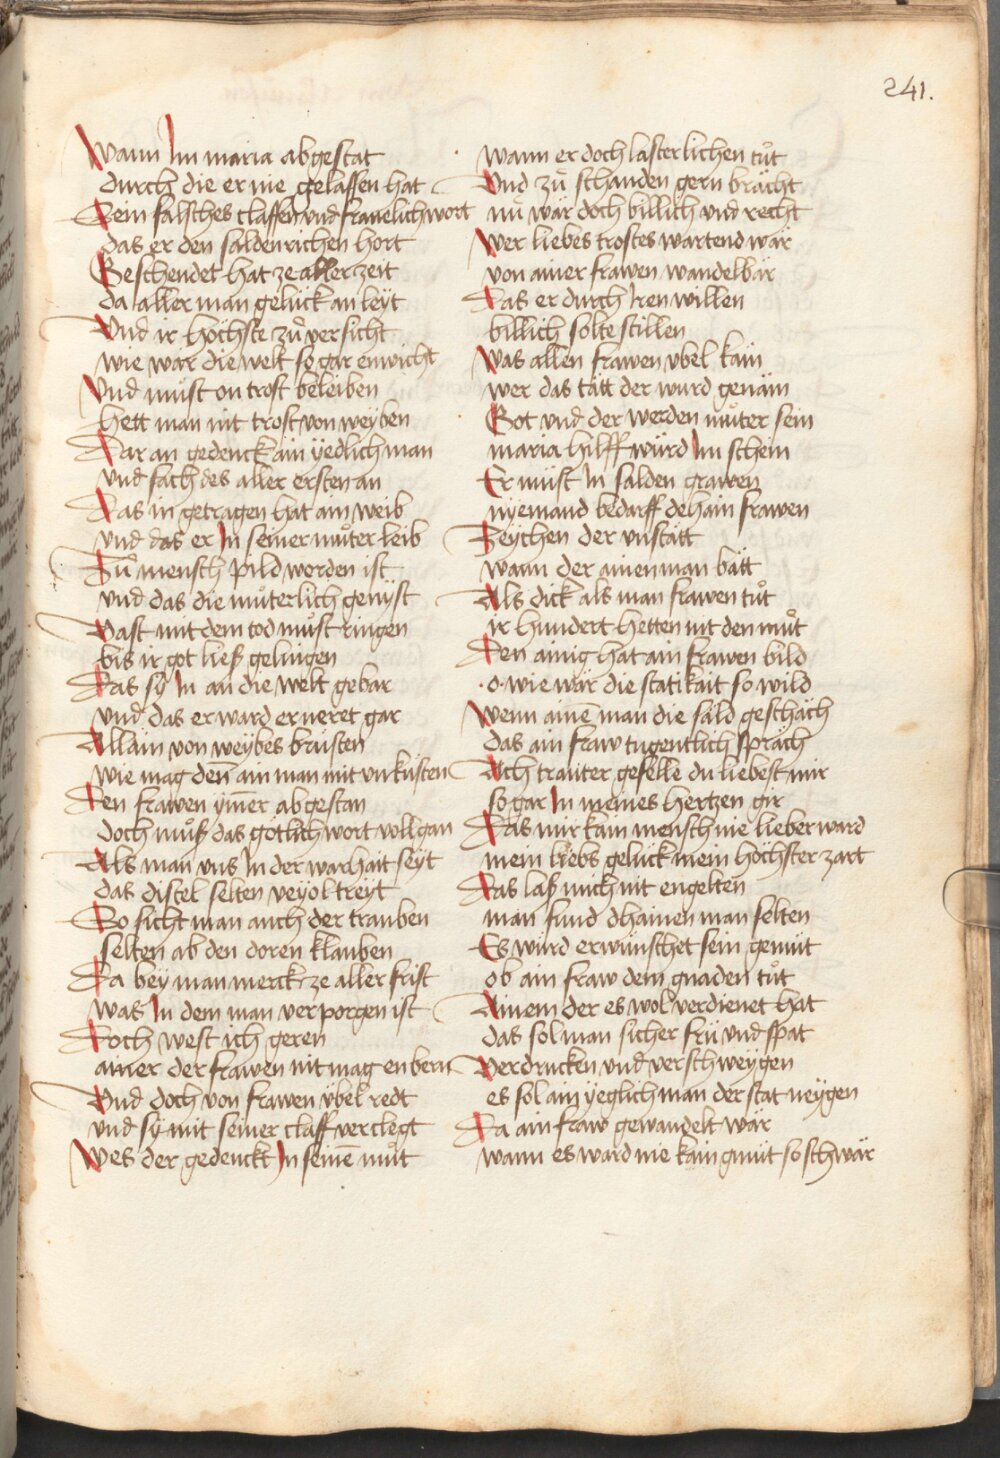 241.
Wann Im maria abgestat
durch die er nie gelassen hat
Sein falsches claffen vnd frauelich wort
das er den säldenrichen hort
Geschendet hat ze aller zeit
da aller man gelück an leyt
Vnd ir höchste zů versicht
wie wär die welt so gar enwicht
Vnd müst on trost beleiben
hett man nit trost von weyben
Dar an gedenck ain yedlich man
vnd fach des aller ersten an
Das in getragen hat ain weib
vnd das er In seiner můter leib
Zů mensch pild worden ist
vnd das die můterlich genyst
Vast mit dem tod můst ringen
bis ir got ließ gelingen
Das sy In an die welt gebar
vnd das er ward erneret gar
Allain von weybes brüsten
wie mag deñ ain man mit vnküsten
Den frawen ym̃er abgestan
doch můß das götlich wort vollgan
Als man vns In der warhait seyt
das distel selten veyol treyt
So sicht man auch der trauben
selten ab den doren klauben
Da bey man merck ze aller frist
was In dem man verporgen ist
Doch west ich geren
ainer der frawen nit mag enbern
Vnd doch von frawen vbel redt
vnd sy mit seiner claff verclegt
Wes der gedenckt In seinē můt
wann er doch lasterlichen tůt
Vnd zů schanden gern brächt
nů wär doch billich vnd recht
Wer liebes trostes wartend wär
von ainer frawen wandelbär
Das er durch Iren willen
billich solte stillen
Was allen frawen vbel käm
wer das tätt der wurd genäm
Got vnd der werden můter sein
maria hilff würd Im schein
Er müst In sälden grawen
nyemand bedarff dehain frawen
Zeychen der vnstätt
wann der ainen man bätt
Als dick als man frawen tůt
ir hundert hetten nit den můt
Den ainig hat ain frawen bild
o wie wär die stätikait so wild
Wenn ainē man die säld geschäch
das ain fraw tugentlich spräch
Ach trauter geselle du liebest mir
so gar In meines hertzen gir
Das mir kain mensch nie lieber ward
mein liebs gelück mein höchster zart
Das laß mich nit engelten
man fund dhainen man selten
Es würd erwünschet sein gemüt
ob ain fraw dem gnaden tůt
Ainem der es wol verdienet hat
das sol man sicher frü vnd spat
Verdrucken vnd verschweygen
es sol ain yeglich man der stat neygen
Da ain fraw gewandelt wär
wann es ward nie kain gmüt so schwär